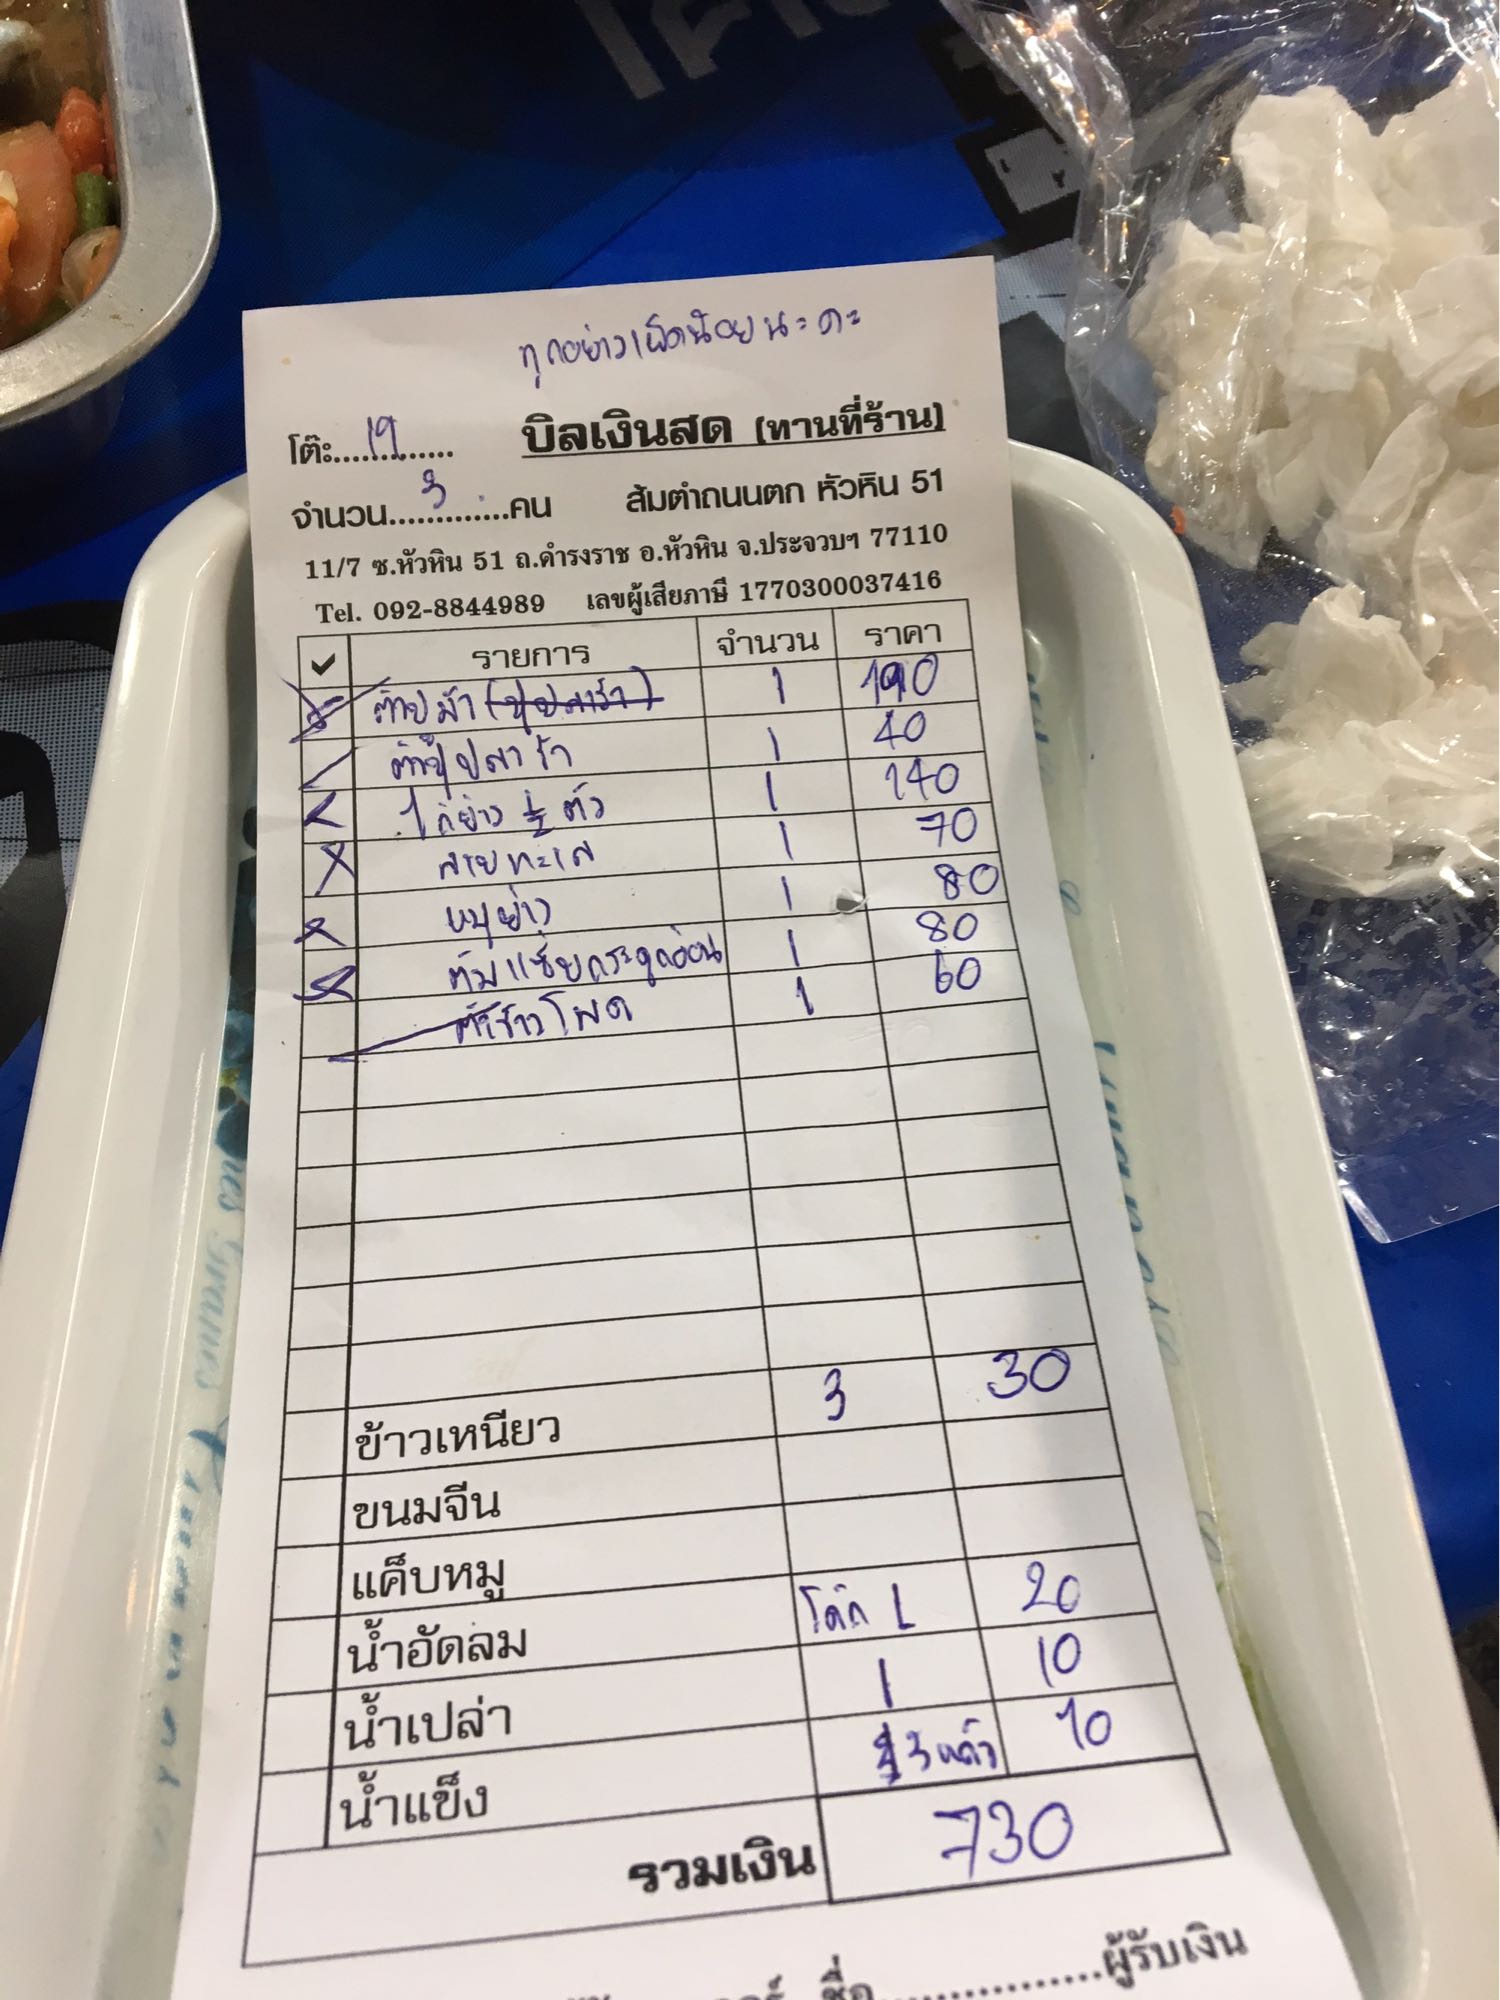 ทุกอย่างเผ็ดน้อยนะคะ
โต๊ะ....19.... บิลเงินสด (ทานที่ร้าน)
จำนวน....3....คน ส้มตำถนนตก หัวหิน 51
11/7 ซ.หัวหิน 51 ถ.ดำรงราช อ.หัวหิน จ.ประจวบฯ 77110
Tel. 092-8844989 เลขผู้เสียภาษี 1770300037416
✓ รายการ จำนวน ราคา
ตำปูม้า 1 190
ตำปูปลาร้า 1 40
ไก่ย่าง ½ ตัว 1 140
1 70
หมูย่าง 1 80
ต้มแซ่บกระดูกอ่อน 1 80
ตำข้าวโพด 1 60
ข้าวเหนียว 3 30
ขนมจีน
แค็บหมู
น้ำอัดลม โค้ก 1 20
น้ำเปล่า 1 10
น้ำแข็ง 3 แก้ว 10
รวมเงิน 730
ชื่อ................ผู้รับเงิน